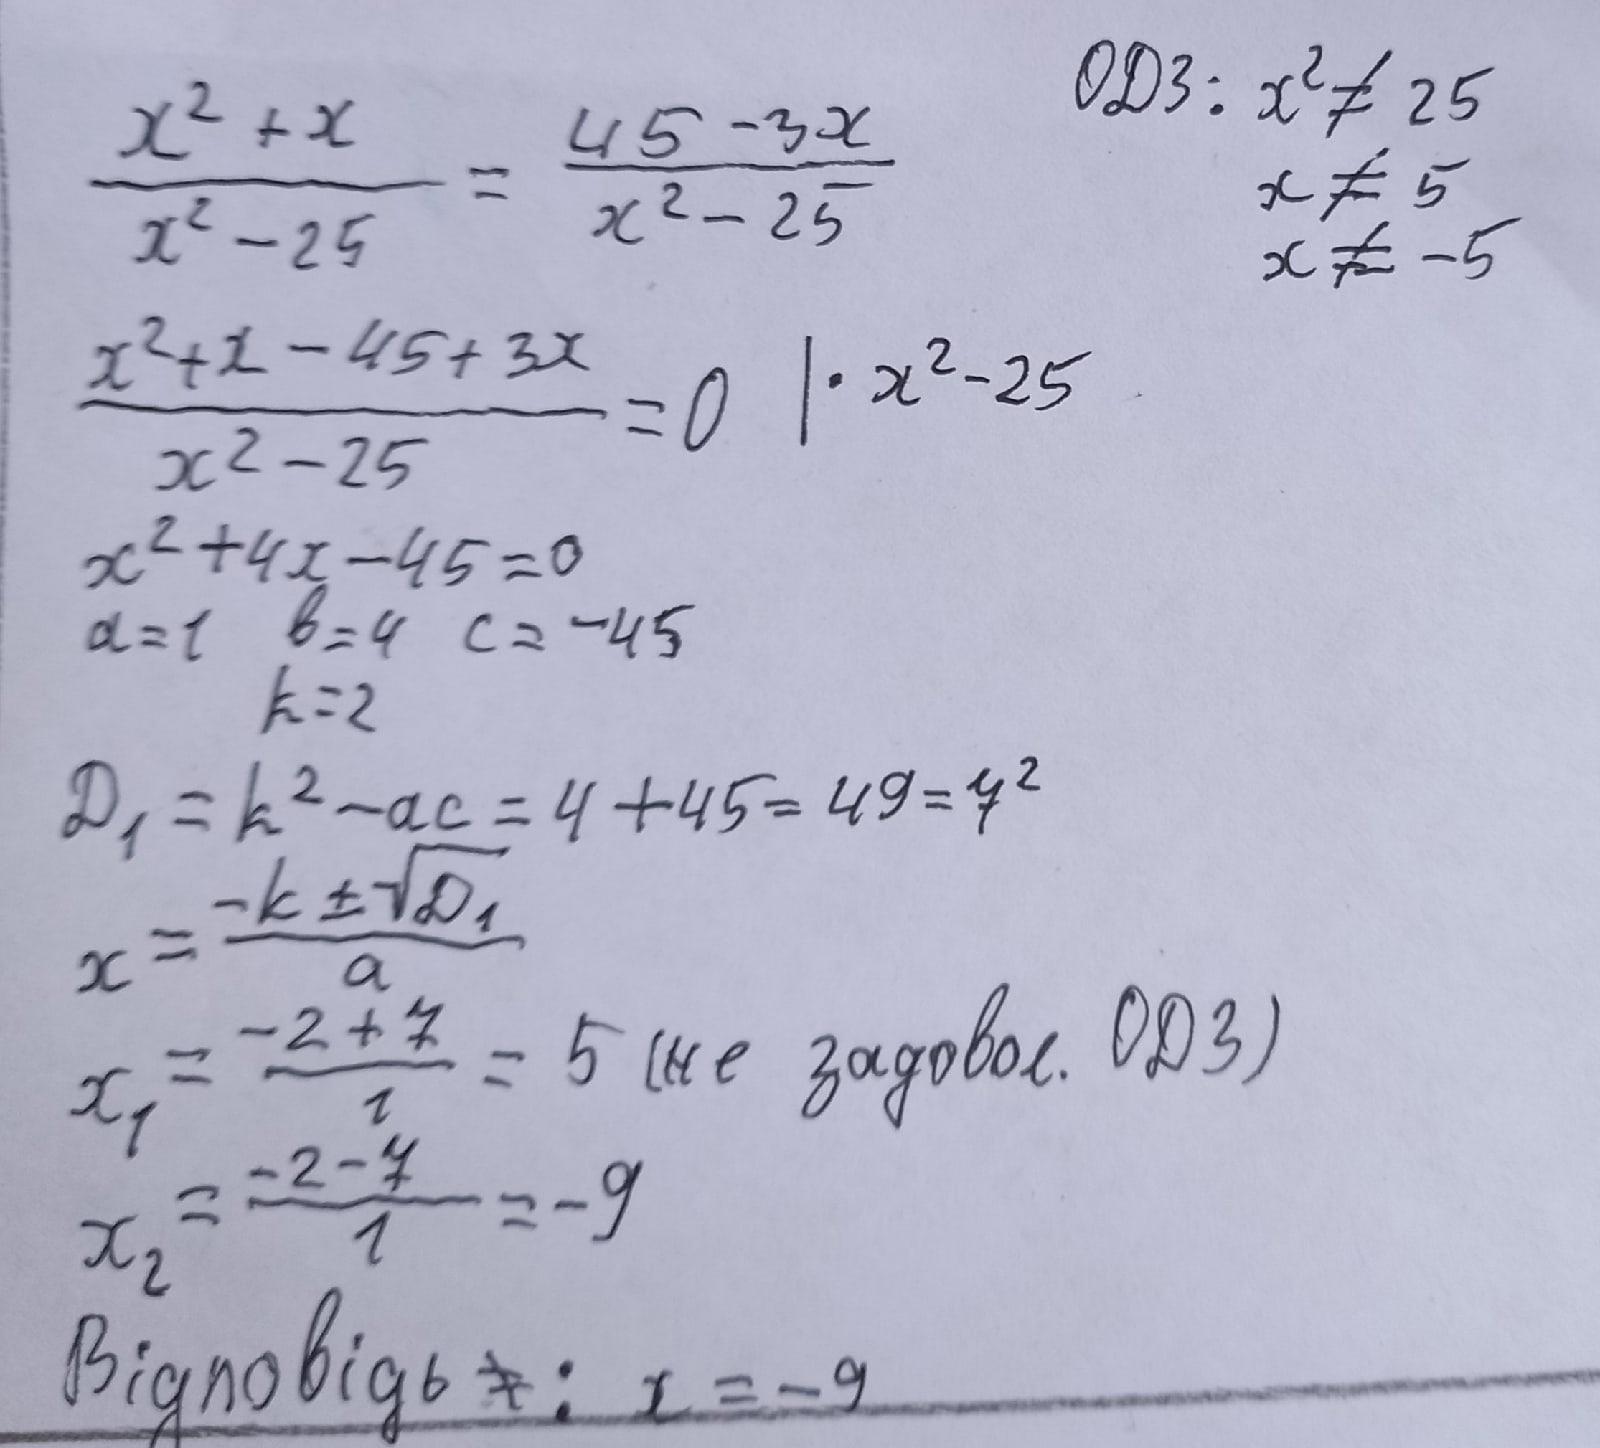 x² + x / x² - 25 = 45 - 3x / x² - 25
ОДЗ: x² ≠ 25
x ≠ 5
x ≠ -5
x² + x - 45 + 3x / x² - 25 = 0 | · x² - 25
x² + 4x - 45 = 0
a = 1 b = 4 c = -45
k = 2
D₁ = k² - ac = 4 + 45 = 49 = 7²
x = -k ± √D₁ / a
x₁ = -2 + 7 / 1 = 5 (не задовол. ОДЗ)
x₂ = -2 - 7 / 1 = -9
Відповідь: x = -9